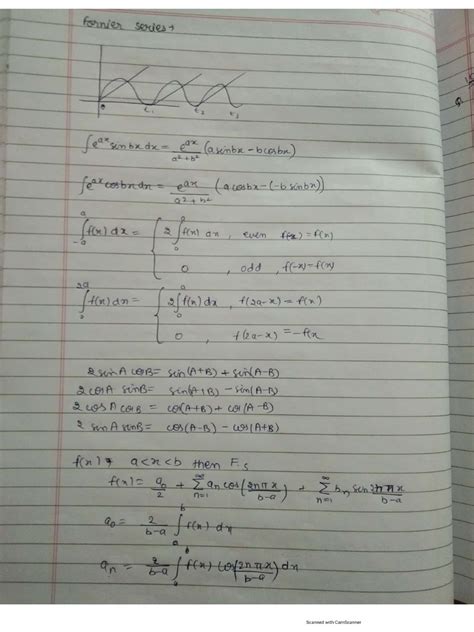 Fornier series →
t₁ t₂ t₃
∫e^{ax} sinbx dx = e^{ax}/(a²+b²) (asinbx - bcosbx)
∫e^{ax} cosbx dx = e^{ax}/(a²+b²) (acosbx - (-b sinbx))
∫_{-a}^{a} f(x) dx = { 2∫_{0}^{a} f(x) dx , even f(-x) = f(x)
0 , odd , f(-x) - f(x)
∫_{0}^{2a} f(x) dx = { 2∫_{0}^{a} f(x) dx , f(2a-x) = f(x)
0 , f(2a-x) = -f(x
2 sinA cosB = sin(A+B) + sin(A-B)
2 cosA sinB = sin(A+B) - sin(A-B)
2 cosA cosB = cos(A+B) + cos(A-B)
2 sinA sinB = cos(A-B) - cos(A+B)
f(x) → a<x<b then F.s
f(x) = a₀/2 + ∑_{n=1}^{∞} aₙ cos(2nπx/(b-a)) + ∑_{n=1}^{∞} bₙ sin 2nπx/(b-a)
a₀ = 2/(b-a) ∫_{a}^{b} f(x) dx
aₙ = 2/(b-a) ∫_{a}^{b} f(x) cos(2nπx/(b-a)) dx
Scanned with CamScanner